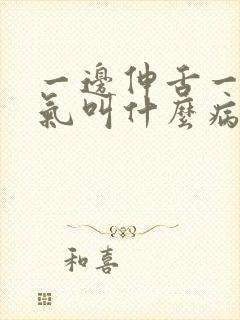 一邊伸舌一
氣叫什麼病
和喜